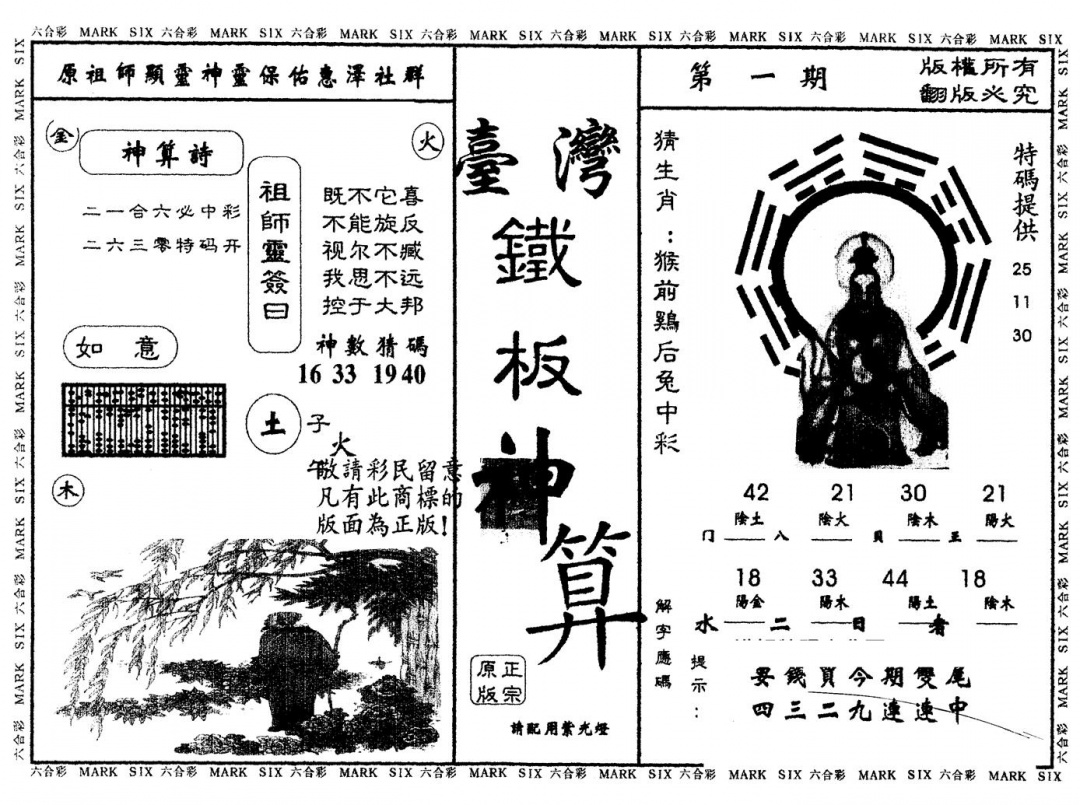 六合彩 MARK SIX 六合彩 MARK SIX 六合彩 MARK SIX 六合彩 MARK SIX 六合彩 MARK SIX 六合彩 MARK SIX 六合彩 MARK SIX 六合彩 MARK SIX
原祖師顯靈神靈保佑惠澤社群
金
火
神算詩
二一合六必中彩
二六三零特码开
祖師靈簽曰
既不它喜
不能旋反
视尔不臧
我思不远
控于大邦
神數猜碼
16 33 19 40
如意
土
子
火
午
木
敬請彩民留意
凡有此商標的
版面為正版!
臺灣
鐵
板
神
算
正宗
原版
請配用紫光燈
第一期
版權所有
翻版必究
猜生肖:猴前鷄后兔中彩
特碼提供
25
11
30
42 21 30 21
陰土 陰火 陰木 陽火
门 八 貝 王
18 33 44 18
陽金 陽木 陽土 陰木
水 二 日 者
解字應碼
提示:
要錢買今期雙尾
四三二九連連中
六合彩 MARK SIX 六合彩 MARK SIX 六合彩 MARK SIX 六合彩 MARK SIX 六合彩 MARK SIX 六合彩 MARK SIX 六合彩 MARK SIX 六合彩 MARK SIX